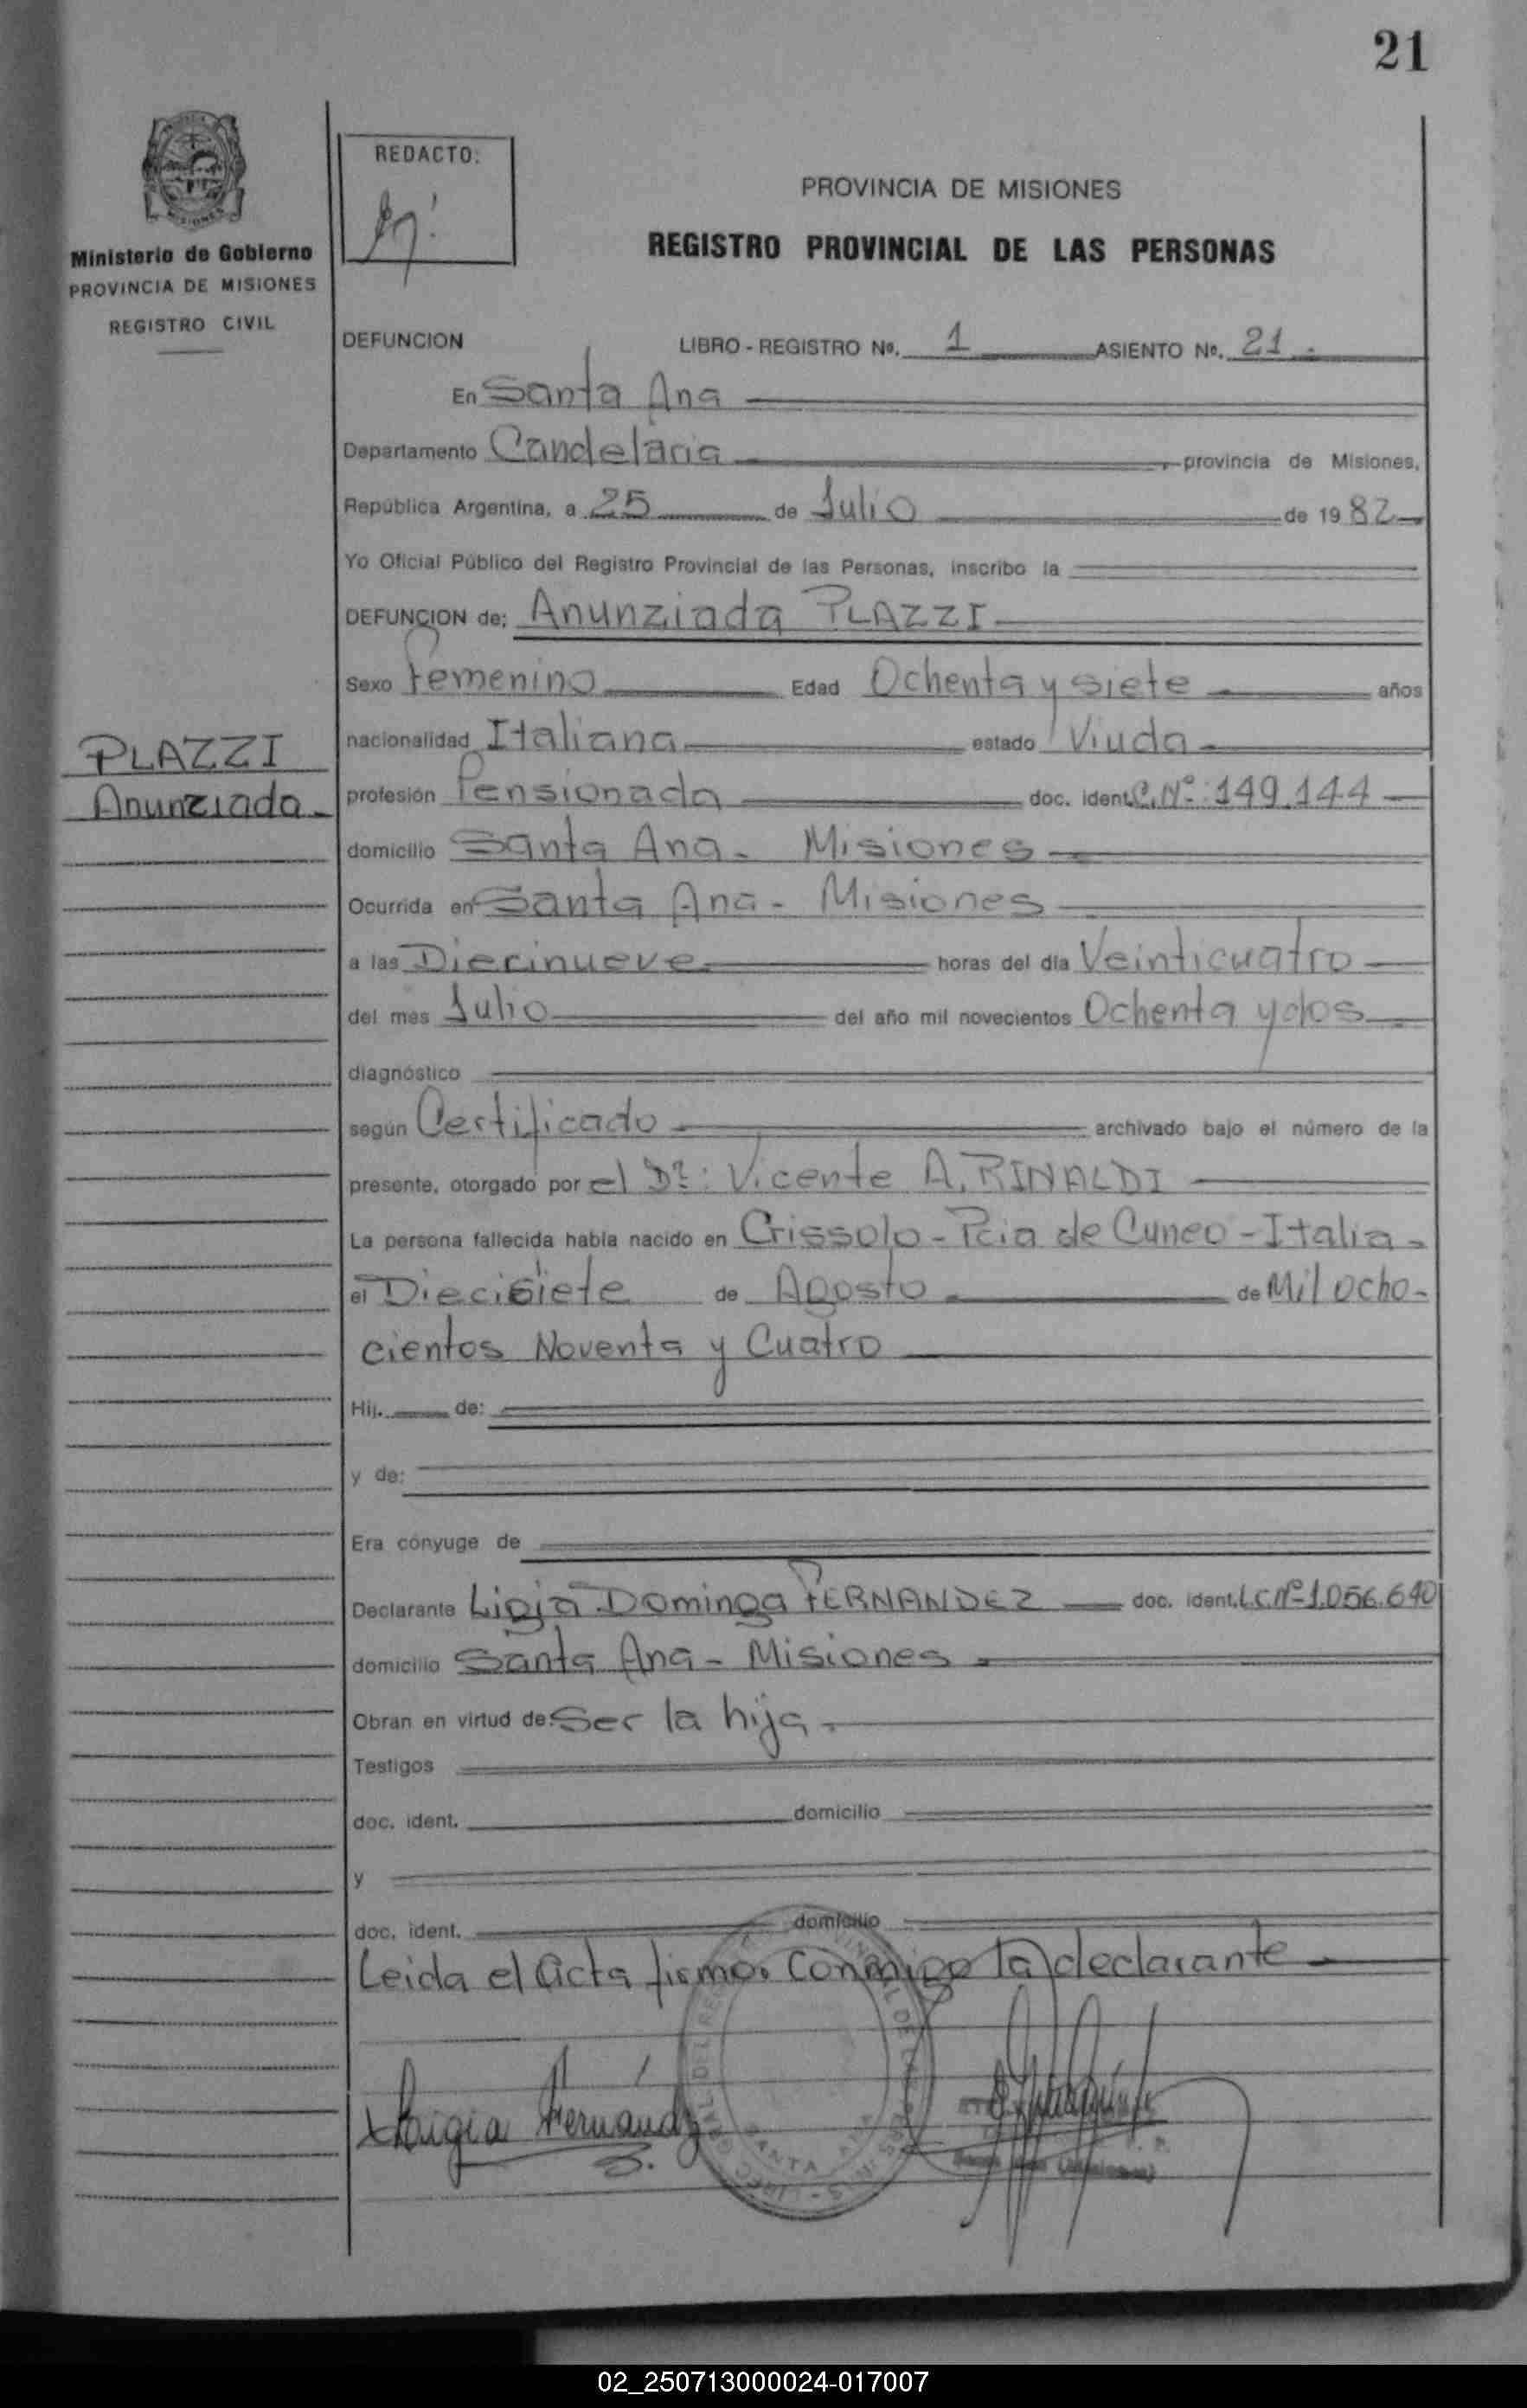 21
REDACTO:
PROVINCIA DE MISIONES
REGISTRO PROVINCIAL DE LAS PERSONAS
Ministerio de Gobierno
PROVINCIA DE MISIONES
REGISTRO CIVIL
DEFUNCION LIBRO - REGISTRO Nº. 1 ASIENTO Nº. 21.
En Santa Ana
Departamento Candelaria, provincia de Misiones,
República Argentina, a 25 de Julio de 1982
Yo Oficial Público del Registro Provincial de las Personas, inscribo la
DEFUNCION de: Anunziada PLAZZI
Sexo Femenino Edad Ochenta y siete años
nacionalidad Italiana estado Viuda
PLAZZI
Anunziada
profesión Pensionada doc. ident. C.Nº: 149.144
domicilio Santa Ana - Misiones
Ocurrida en Santa Ana - Misiones
a las Diecinueve horas del día Veinticuatro
del mes Julio del año mil novecientos Ochenta y dos
diagnóstico
según Certificado archivado bajo el número de la
presente, otorgado por el Dr: Vicente A. RINALDI
La persona fallecida había nacido en Crissolo - Pcia de Cuneo - Italia -
el Diecisiete de Agosto de Mil ocho-
cientos Noventa y Cuatro
Hij. de:
y de:
Era cónyuge de
Declarante Ligia Dominga FERNANDEZ doc. ident. L.C.Nº 1.056.640
domicilio Santa Ana - Misiones
Obran en virtud de: Ser la hija.
Testigos
doc. ident. domicilio
y
doc. ident. domicilio
Leida el acta firma conmigo la declarante
Ligia Fernández
02_250713000024-017007